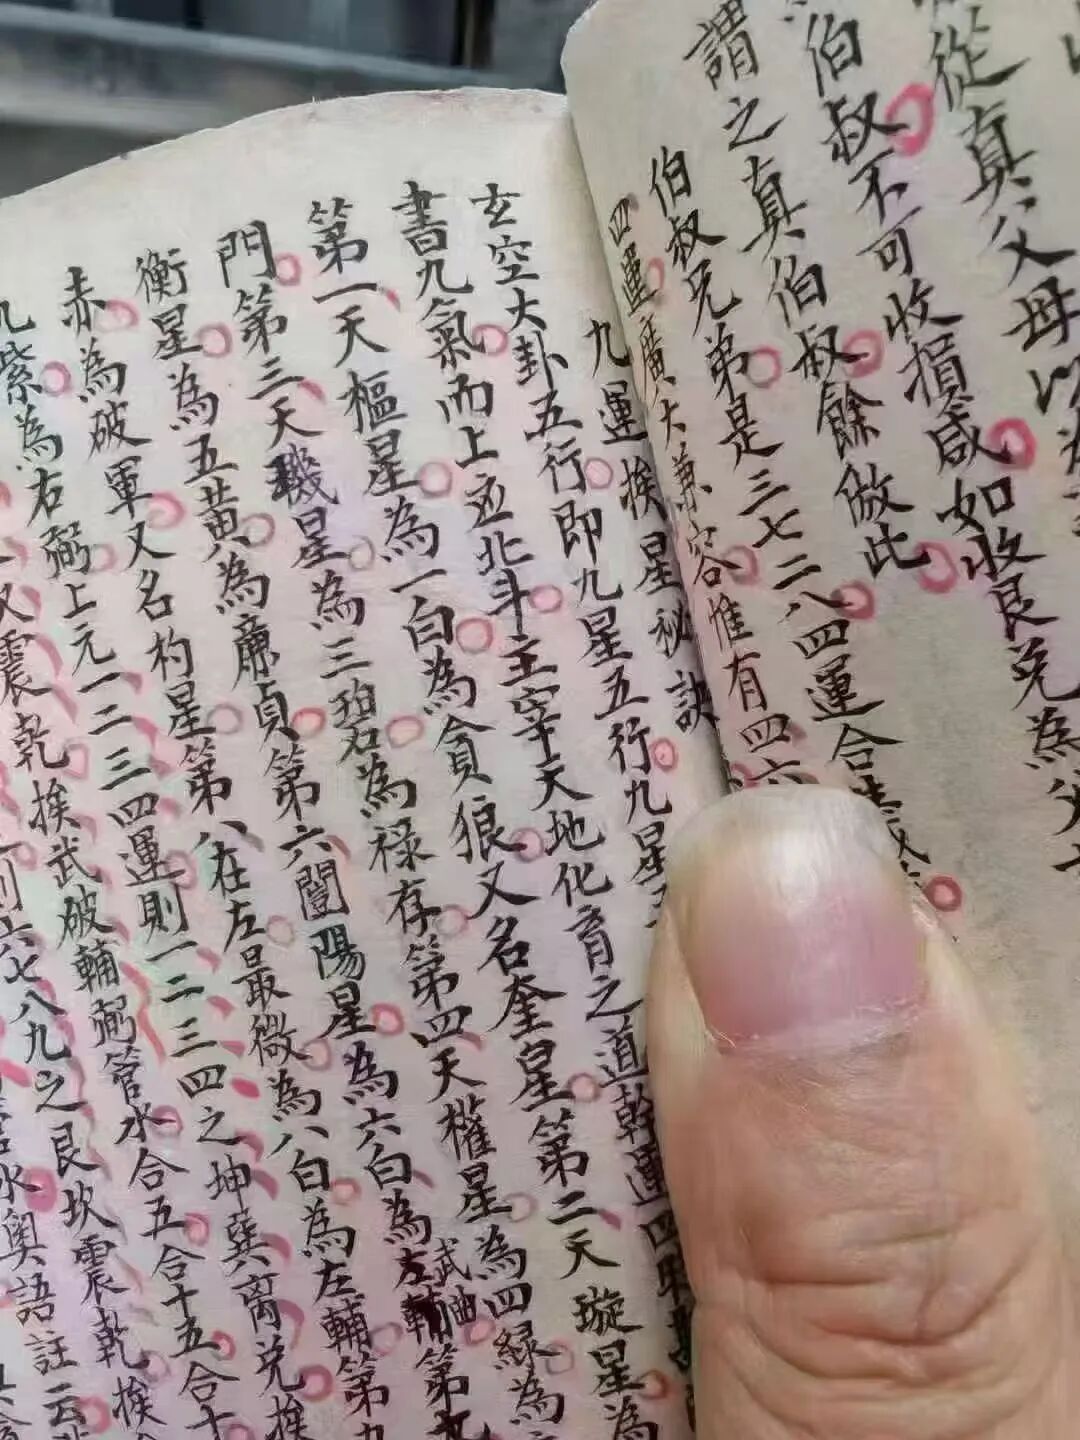 從真父母以為
伯叔不可收損咸如收艮兌為父
謂之真伯叔餘倣此
伯叔兄弟是三七二八四運合
四運廣大兼容惟有四六
九運挨星秘訣
玄空大卦五行即九星五行九星
書九氣而上应北斗主宰天地化育之道幹運四時
第一天樞星為一白為貪狼又名奎星第二天璇星為
門第三天璣星為三碧為祿存第四天權星為四綠為
衡星為五黃為廉貞第六闓陽星為六白為武曲第
赤為破軍又名杓星第八在左最微為八白為左輔第九
九紫為右弼上元一二三四運則一二三四之坤巽离兌挨
又震乾挨武破輔弼管水合五合十五合十
六七八九之艮坎震乾挨
水奧語註云